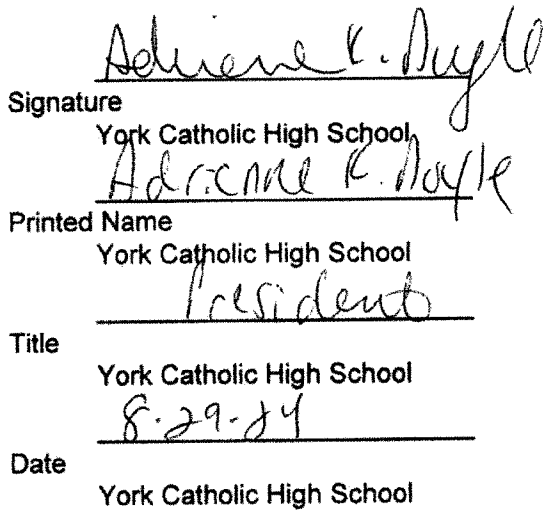 Adriene K. Doyle
Signature
York Catholic High School
Adrienne K. Doyle
Printed Name
York Catholic High School
President
Title
York Catholic High School
8-29-24
Date
York Catholic High School